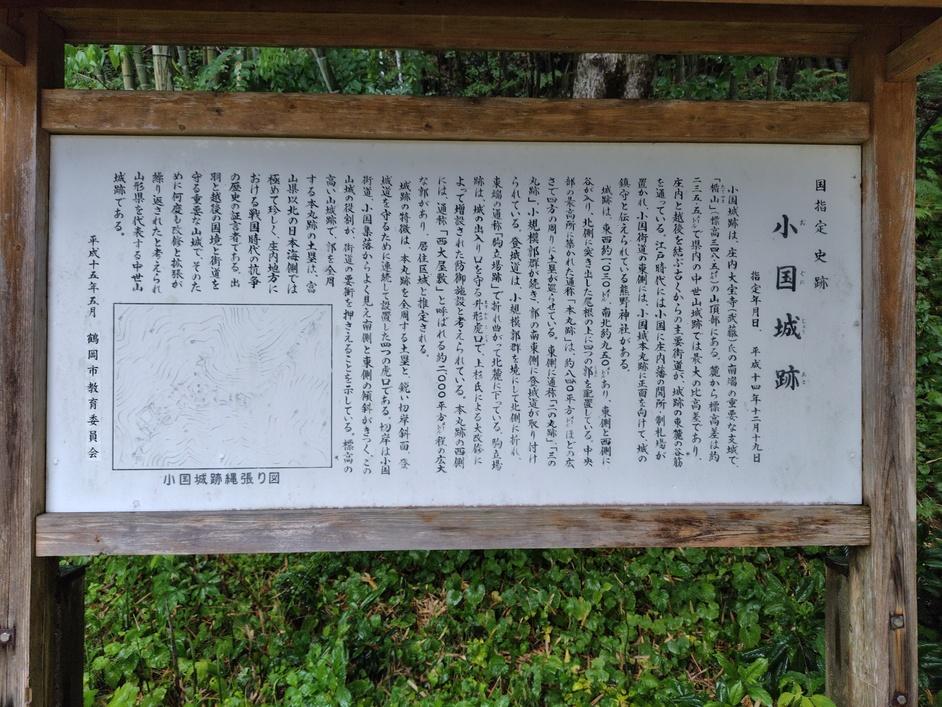 国指定史跡
小国城跡
おぐにじょうあと
指定年月日 平成十四年十二月十九日
小国城跡は、庄内大宝寺(武藤)氏の南端の重要な支城で、
「楯山」(標高三四八ｍ)の山頂部にある。麓から標高差は約
庄内と越後を結ぶ古くからの主要街道が、城跡の東麓の谷筋
を通っている。江戸時代には小国に庄内藩の関所・制札場が
置かれ、小国街道の東側には、小国城本丸跡に正面を向けて、城の
鎮守と伝えられている熊野神社がある。
城跡は、東西約 南北約 あり、東側と西側に
谷が入り、北側に突き出した尾根の上に四つの郭を配置している。中央
部の最高所に築かれた通称「本丸跡」は、約八四〇平方 ほどの広
さで四方の周りに土塁が巡らせている。東側に通称「二の丸跡」「三の
丸跡」、小規模郭群が続き、郭の南東側に登城道が取り付け
られている。登城道は、小規模郭群を境にして北側に折れ、
東端の通称「駒立場跡」で折れ曲がって北麓に下っている。駒立場
跡は、城の出入り口を守る外形虎口で、上杉氏による大改修に
よって増設された防御施設と考えられている。本丸跡の西側
には、通称「西大屋敷」と呼ばれる約二〇〇〇平方 程の広大
な郭があり、居住区域と推定される。
城跡の特徴は、本丸跡を全周する土塁と、鋭い切岸斜面、登
城道を守るために連続して設置した四つの虎口である。切岸は小国
街道、小国集落からよく見え南側と東側の傾斜がきつく、この
山城の役割が、街道の要衝を押さえることを示している。標高の
高い山城跡で、郭を全周
する本丸跡の土塁は、富
山県以北の日本海側では
極めて珍しく、庄内地方に
おける戦国時代の抗争
の歴史の証言者である。出
羽と越後の国境と街道を
守る重要な山城で、そのた
めに何度も改修と拡張が
繰り返されたと考えられ
山形県を代表する中世山
城跡である。
平成十五年五月 鶴岡市教育委員会
小国城跡縄張り図